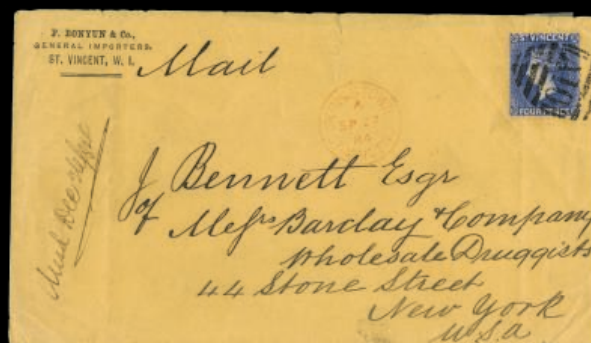 F. BONYUN & Co.,
GENERAL IMPORTERS,
ST. VINCENT, W. I.
Mail
ST VINCENT
FOUR PENCE
J Bennett Esqr
of Messrs Barclay & Company
Wholesale Druggists
44 Stone Street
New York
U.S.a